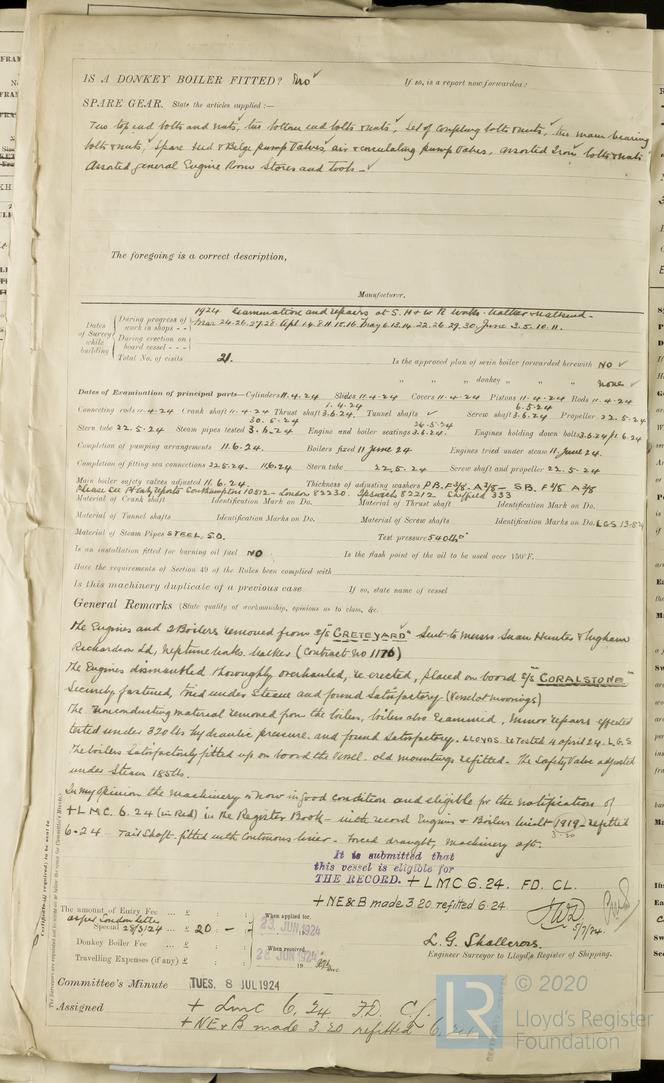 IS A DONKEY BOILER FITTED? No ✓ If so, is a report now forwarded?
SPARE GEAR. State the articles supplied:—
Two top end bolts and nuts, two bottom end bolts & nuts, Set of coupling bolts & nuts, two main bearing
bolts & nuts, Spare feed & Bilge pump Valves, air & circulating pump Valves, assorted Iron bolts & nuts
Assorted general Engine Room Stores and tools. ✓
The foregoing is a correct description,
Manufacturer.
1924 Examination and repairs at S. H & W R Works. Walker & Wallsend.
Dates of Survey while building
During progress of work in shops - - Mar 24.26.27.28. Apl 1.4.8.11.15.16. May 6.13.14.22.26.29.30. June 3.5.10.11.
During erection on board vessel - - -
Total No. of visits 21.
Is the approved plan of main boiler forwarded herewith NO ✓
" " " donkey " " " none ✓
Dates of Examination of principal parts—Cylinders 11.4.24 Slides 11.4.24 Covers 11.4.24 Pistons 11.4.24 Rods 11.4.24
Connecting rods 11.4.24 Crank shaft 11.4.24 Thrust shaft 1.4.24 3.6.24 Tunnel shafts ✓ Screw shaft 6.5.24 13.6.24 Propeller 22.5.24
Stern tube 22.5.24 Steam pipes tested 30.5.24 3.6.24 Engine and boiler seatings 26.5.24 3.6.24 Engines holding down bolts 3.6.24 11.6.24
Completion of pumping arrangements 11.6.24. Boilers fixed 11 June 24 Engines tried under steam 11 June 24.
Completion of fitting sea connections 22.5.24. 11.6.24 Stern tube 22.5.24 Screw shaft and propeller 22.5.24
Main boiler safety valves adjusted 11.6.24. Thickness of adjusting washers P.B. F 3/8 - A 3/8 - S.B. F 3/8 A 3/8
Please see Early reports Southampton 10512 - London 82230. Ipswich 82212 Sheffield 333
Material of Crank shaft Identification Mark on Do. Material of Thrust shaft Identification Mark on Do.
Material of Tunnel shafts Identification Marks on Do. Material of Screw shafts Identification Marks on Do. LGS 13.
Material of Steam Pipes STEEL. S.D. Test pressure 540 lbs □"
Is an installation fitted for burning oil fuel NO Is the flash point of the oil to be used over 150°F.
Have the requirements of Section 49 of the Rules been complied with
Is this machinery duplicate of a previous case If so, state name of vessel
General Remarks (State quality of workmanship, opinions as to class, &c.
The Engines and 2 Boilers removed from S/S "CRETEYARD" Sent to Messrs Swan Hunter & Wigham
Richardson Ld, Neptune works. Walker (Contract No 1176)
The Engines dismantled thoroughly overhauled, re erected, placed on board S/S "CORALSTONE"
Securely fastened, tried under Steam and found Satisfactory (Vessel at moorings)
The nonconducting material removed from the boilers, boilers also Examined, Minor repairs effected
tested under 320 lbs hydraulic pressure. and found Satisfactory. LLOYDS RETESTED 4 april 24. L.G.S
The boilers Satisfactorily fitted up on board the Vessel. old mountings refitted. The Safety Valve adjusted
under Steam 185 lbs.
In my opinion the machinery is now in good condition and eligible for the notification of
+ L M C. 6. 24 (in Red) in the Register Book - with record Engines & Boilers built 1919 - refitted
3.20
6-24 Tail Shaft. fitted with Continuous liner. Forced draught, Machinery aft.
It is submitted that
this vessel is eligible for
THE RECORD. + LMC 6.24. FD. CL.
+ NE&B made 3.20 refitted 6.24.
The amount of Entry Fee ... £ : :
as per London letter
Special 28/3/24 ... £ 20 : - :
Donkey Boiler Fee ... £ : :
Travelling Expenses (if any) £ : :
When applied for,
23 JUN 1924
When received,
28 JUN 1924
5/7/24.
L. G. Shallcross.
Engineer Surveyor to Lloyd's Register of Shipping.
Committee's Minute TUES. 8 JUL 1924
Assigned + LMC 6. 24 FD. CL.
+ NE & B made 3.20 refitted 6.24
LR
© 2020
Lloyd's Register
Foundation